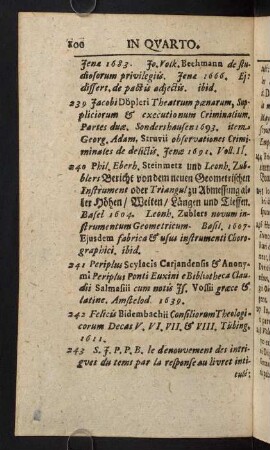 200 IN QVARTO.
Jenæ 1683. Jo. Volk. Bechmann de stu-
diosorum privilegiis. Jenæ 1666. Ej:
dissert. de pactis adjectis. ibid.
239 Jacobi Döpleri Theatrum pœnarum, sup-
pliciorum & executionum Criminalium.
Partes duæ. Sondershausen 1693. item
Georg. Adam. Struvii observationes Crimi-
minales de delictis. Jenæ 1691. Voll. II.
240 Phil. Eberh. Steinmetz und Leonh. Zub-
blers Bericht von dem neuen Geometrischen
Instrument oder Triangul zu Abmessung al-
ler Höhen / Weiten / Längen und Tieffen.
Basel 1604. Leonh. Zublers novum in-
strumentum Geometricum. Basil. 1607.
Ejusdem fabrica & usus instrumenti Choro-
graphici. ibid.
241 Periplus Scylacis Carjandensis & Anony-
mi Periplus Ponti Euxini e Bibliotheca Clau-
dii Salmasiii cum notis Js. Vossii græce &
latine. Amstelod. 1639.
242 Felicis Bidembachii Consiliorum Theologi-
corum Decas V. VI. VII. & VIII. Tübing.
1611.
243 S. J. P. P. B. le denouvement des intri-
gves du tems par la response au livret inti-
tulé;